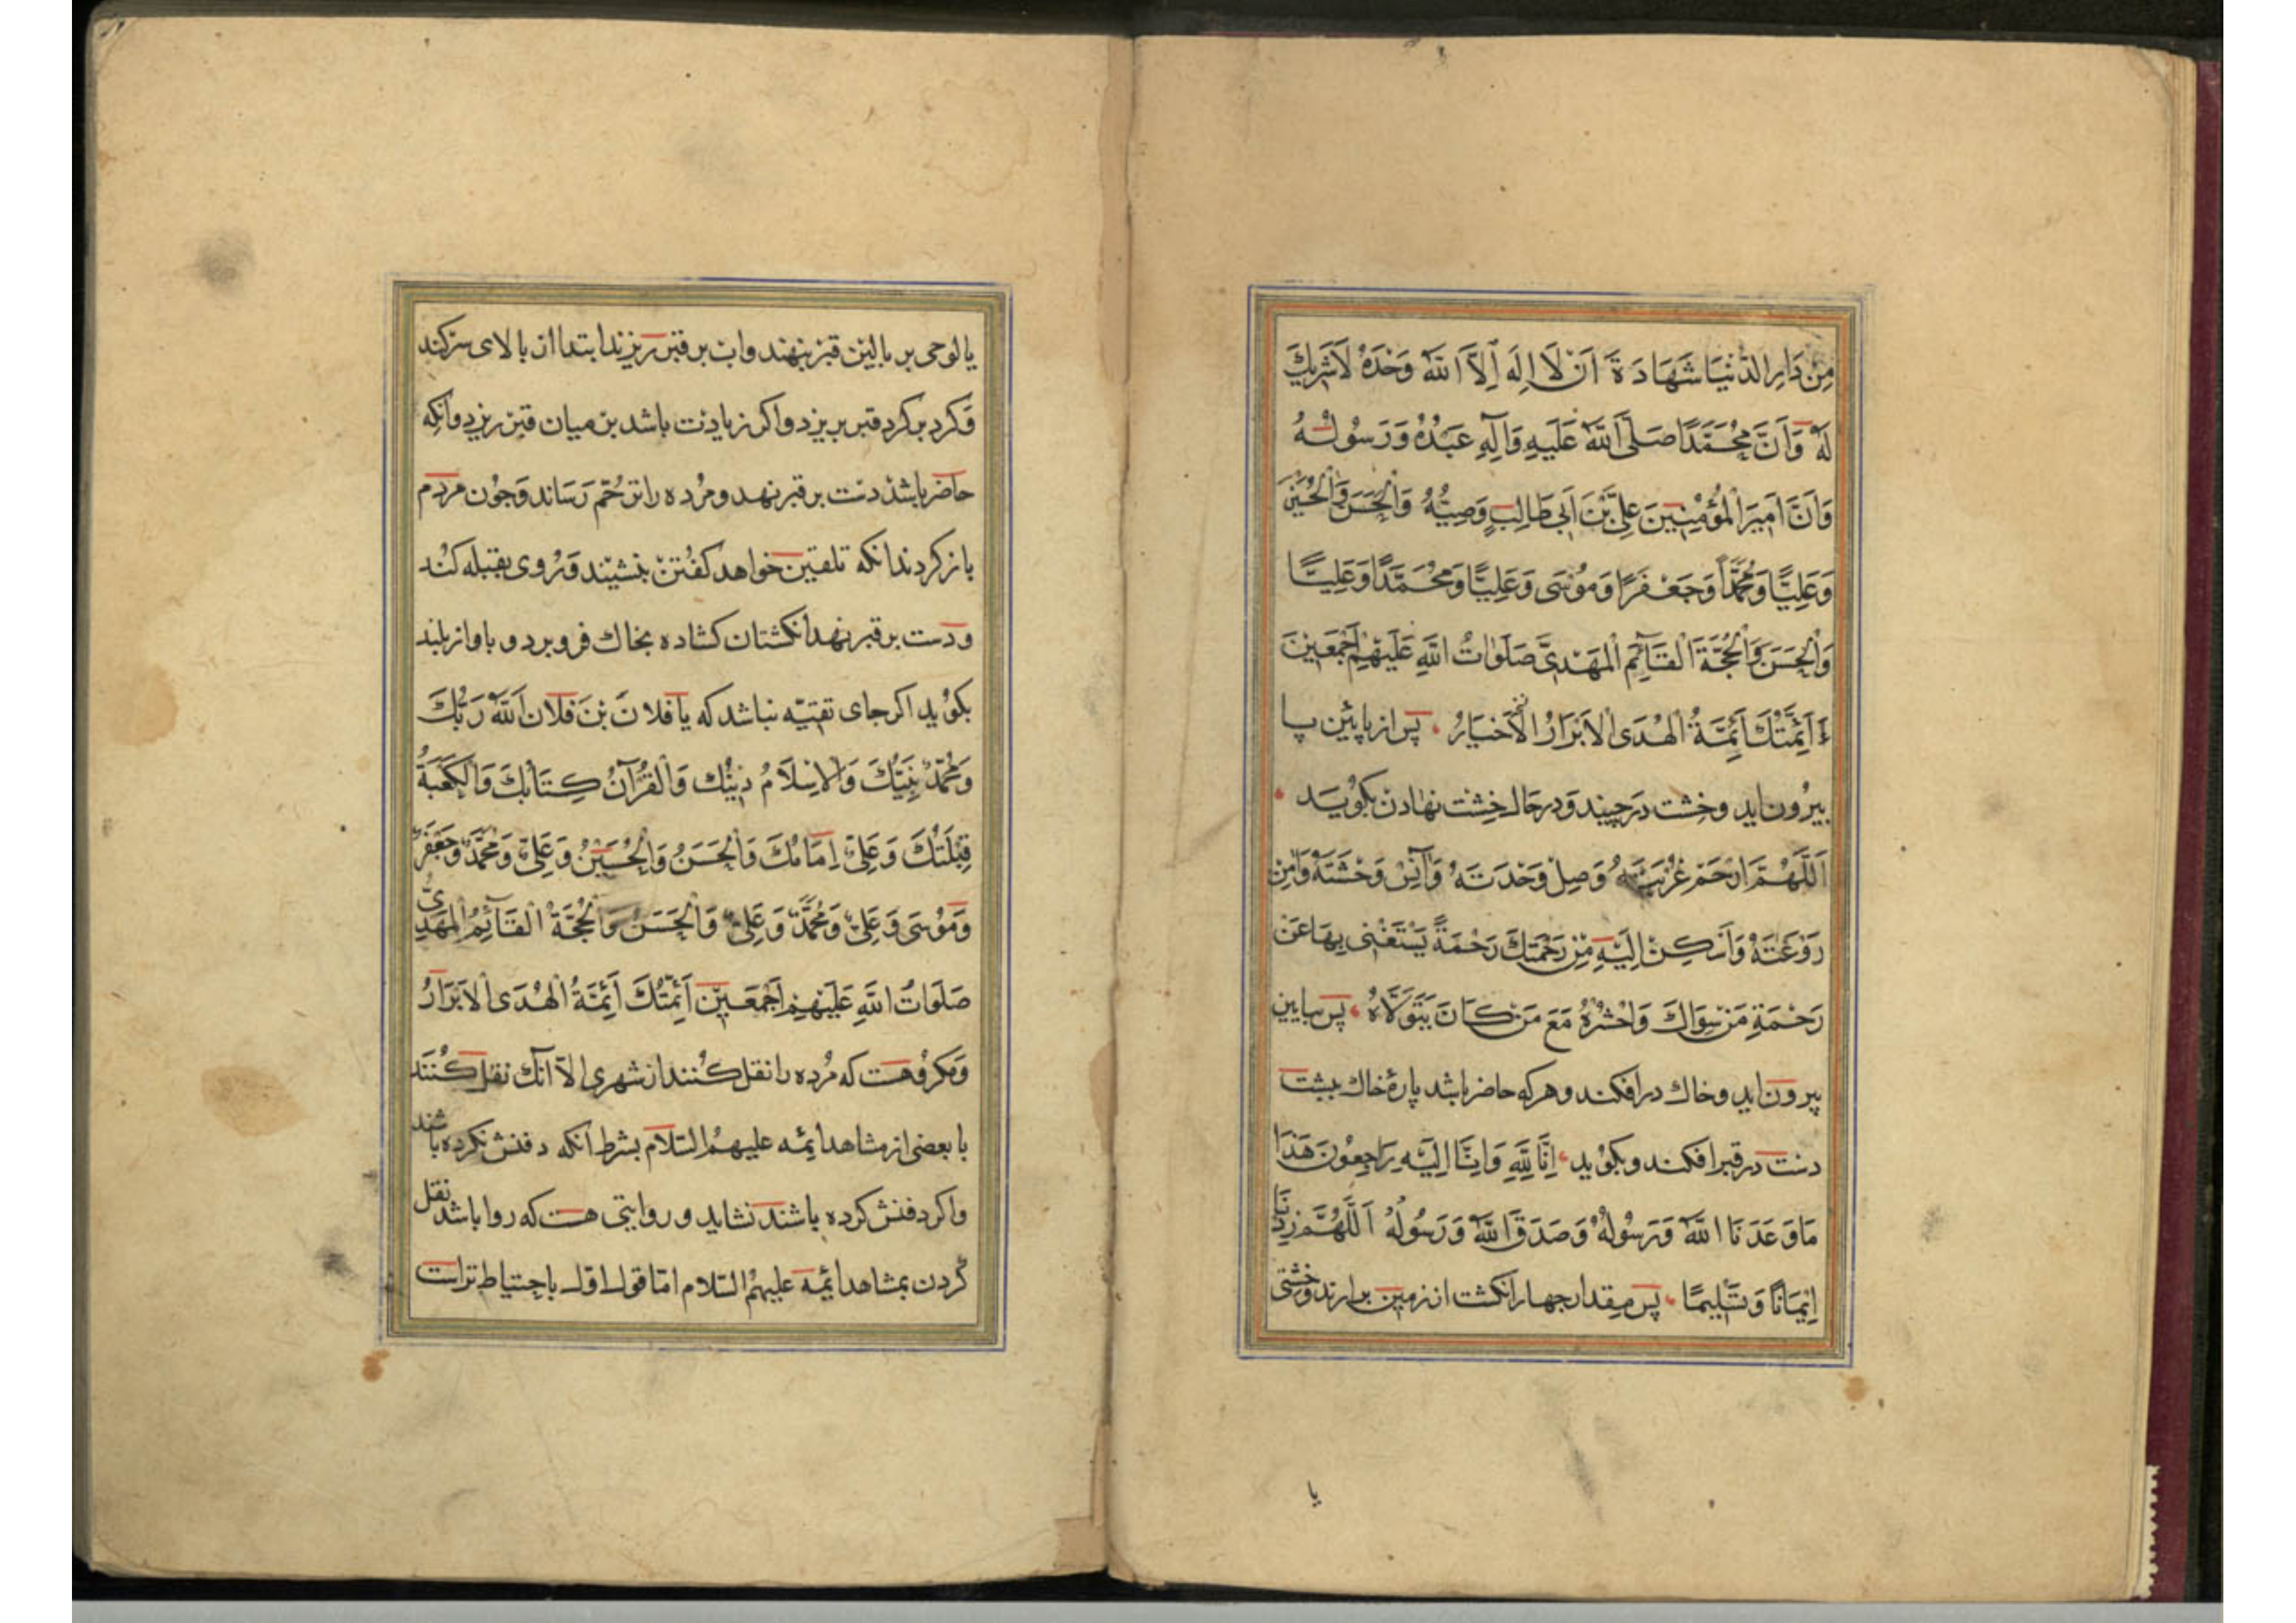 مِنْ دَارِ الدُّنْيَا شَهَادَةَ اَنْ لَا اِلَهَ اِلَّا اللّٰهُ وَحْدَهُ لَاشَرِيكَ
لَهُ وَاَنَّ مُحَمَّدًا صَلَّى اللّٰهُ عَلَيْهِ وَآلِهِ عَبْدُهُ وَرَسُولُهُ
وَاَنَّ اَمِيرَ الْمُؤْمِنِينَ عَلِىَّ بْنَ اَبِى طَالِبٍ وَصِيُّهُ وَالْحَسَنَ وَالْحُسَيْنَ
وَعَلِيًّا وَمُحَمَّدًا وَجَعْفَرًا وَمُوسَى وَعَلِيًّا وَمُحَمَّدًا وَعَلِيًّا
وَالْحَسَنَ وَالْحُجَّةَ الْقَآئِمَ الْمَهْدِىَّ صَلَوَاتُ اللّٰهِ عَلَيْهِمْ اَجْمَعِينَ
اَئِمَّتُكَ اَئِمَّةُ الْهُدَى الْاَبْرَارُ الْاَخْيَارُ پس از پایین پا
بیرون اید وخشت درچیند ودرحال خشت نهادن بکوید
اَللّٰهُمَّ ارْحَمْ غُرْبَتَهُ وَصِلْ وَحْدَتَهُ وَآنِسْ وَحْشَتَهُ وَآمِنْ
رَوْعَتَهُ وَاَسْكِنْ اِلَيْهِ مِنْ رَحْمَتِكَ رَحْمَةً يَسْتَغْنِى بِهَا عَنْ
رَحْمَةِ مَنْ سِوَاكَ وَاحْشُرْهُ مَعَ مَنْ كَانَ يَتَوَلَّاهُ پس بیاین
بیرون اید وخاك درافکند وهرکه حاضر باشد پارهٔ خاك بپشت
دست درقبر افکند و بکوید اِنَّا لِلّٰهِ وَاِنَّا اِلَيْهِ رَاجِعُونَ هَذَا
مَا وَعَدَنَا اللّٰهُ وَرَسُولُهُ وَصَدَقَ اللّٰهُ وَرَسُولُهُ اَللّٰهُمَّ زِدْنَا
اِيمَانًا وَتَسْلِيمًا پس مقدار جهار انکشت از زمین برارند وخشتی
یا
یا لوحی بر بالین قبر بنهند واب بر قبر ریزند ابتدا از بالای سر کند
وکرد بر کرد قبر بریزد واکر زیادت باشد بر میان قبر ریزد وانکه
حاضر باشد دست بر قبر نهد ومرده را ترحم رساند وجون مردم
باز کردند انکه تلقین خواهد کفتن بنشیند وروی بقبله کند
ودست بر قبر نهد انکشتان کشاده بخاك فرو برد و باواز بلند
بکوید اکر جای تقیّه نباشد که يَا فُلَانَ بْنَ فُلَان اَللّٰهُ رَبُّكَ
وَمُحَمَّدٌ نَبِيُّكَ وَالْاِسْلَامُ دِينُكَ وَالْقُرْآنُ كِتَابُكَ وَالْكَعْبَةُ
قِبْلَتُكَ وَعَلِىٌّ اِمَامُكَ وَالْحَسَنُ وَالْحُسَيْنُ وَعَلِىٌّ وَمُحَمَّدٌ وَجَعْفَرٌ
وَمُوسَى وَعَلِىٌّ وَمُحَمَّدٌ وَعَلِىٌّ وَالْحَسَنُ وَالْحُجَّةُ الْقَآئِمُ الْمَهْدِىُّ
صَلَوَاتُ اللّٰهِ عَلَيْهِمْ اَجْمَعِينَ اَئِمَّتُكَ اَئِمَّةُ الْهُدَى الْاَبْرَارُ
ومکروهست که مرده را نقل کنند از شهری الّا آنك نقل کنند
با بعضی از مشاهد ایمه علیهم السّلام بشرط انکه دفنش نکرده باشند
واکر دفنش کرده باشند نشاید و روایتی هست که روا باشد نقل
کردن بمشاهد ایمه علیهم السّلام امّا قول اوّل باحتیاط تراست